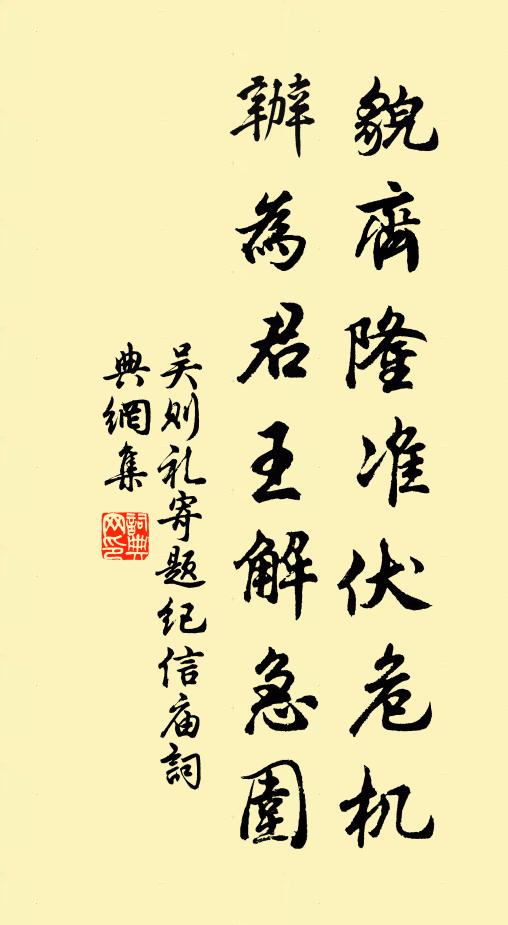 貌齊隆准伏危机
辦為君王解急圍
吴则礼寄题纪信庙詞
典網集
詞典
网印